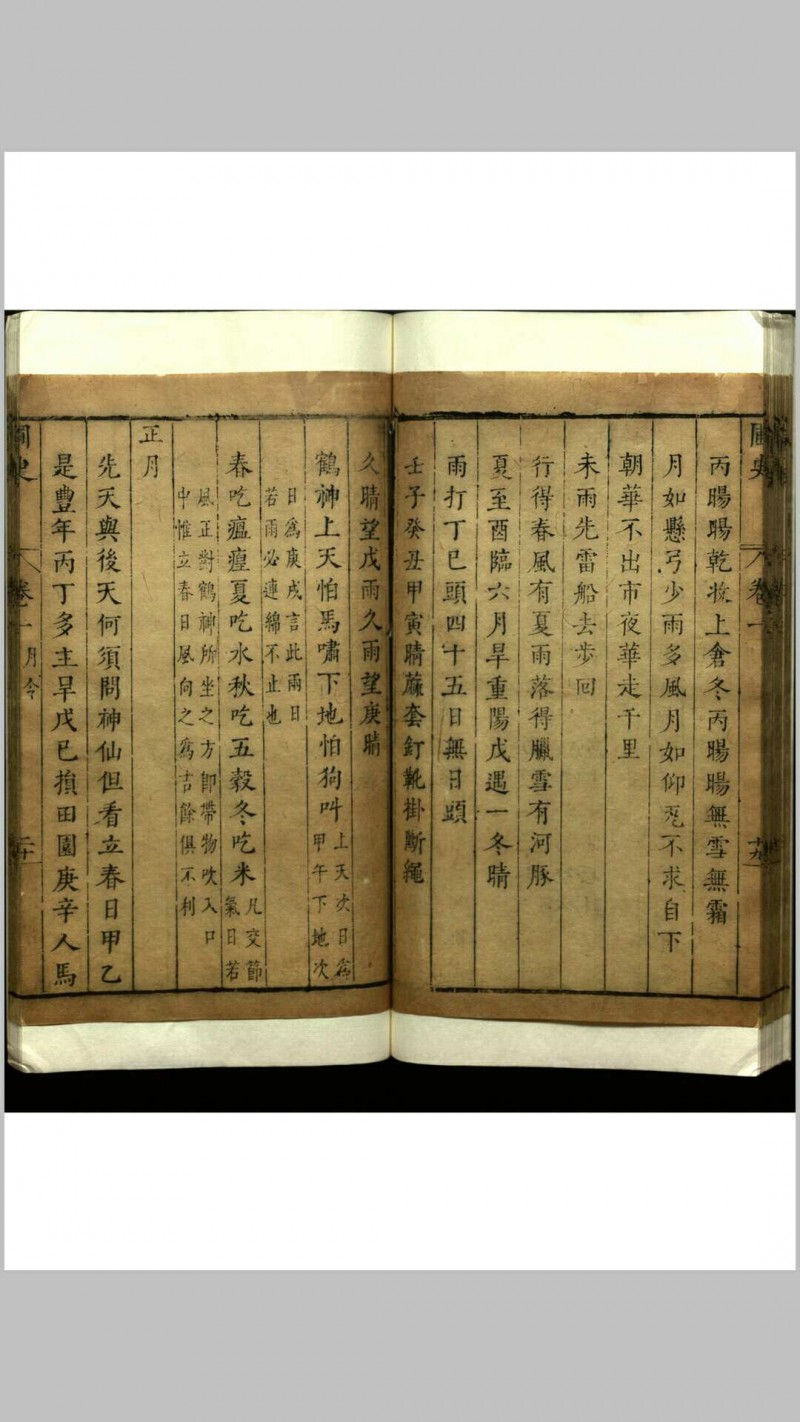 丙暘暘乾收上倉冬丙暘暘無雪無霜
月如懸弓少雨多風月如仰瓦不求自下
朝華不出市夜華走千里
未雨先雷船去步回
行得春風有夏雨落得臘雪有河豚
夏至酉臨六月旱重陽戊遇一冬晴
雨打丁巳頭四十五日無日頭
壬子癸丑甲寅晴蔴套釘靴掛斷繩
久晴望戊雨久雨望庚晴
鶴神上天怕馬嘯下地怕狗叫
上天次日為
甲午下地次
日為庚戌言此兩日
若雨必連綿不止也
春吃瘟𤸇夏吃水秋吃五穀冬吃米
凡交節
氣日若
風正對鶴神所坐之方卽帶物吹入口
中惟立春日風向之為吉餘俱不利
正月
先天與後天何須問神仙但看立春日甲乙
是豐年丙丁多主旱戊巳損田園庚辛人馬
卷一 月令